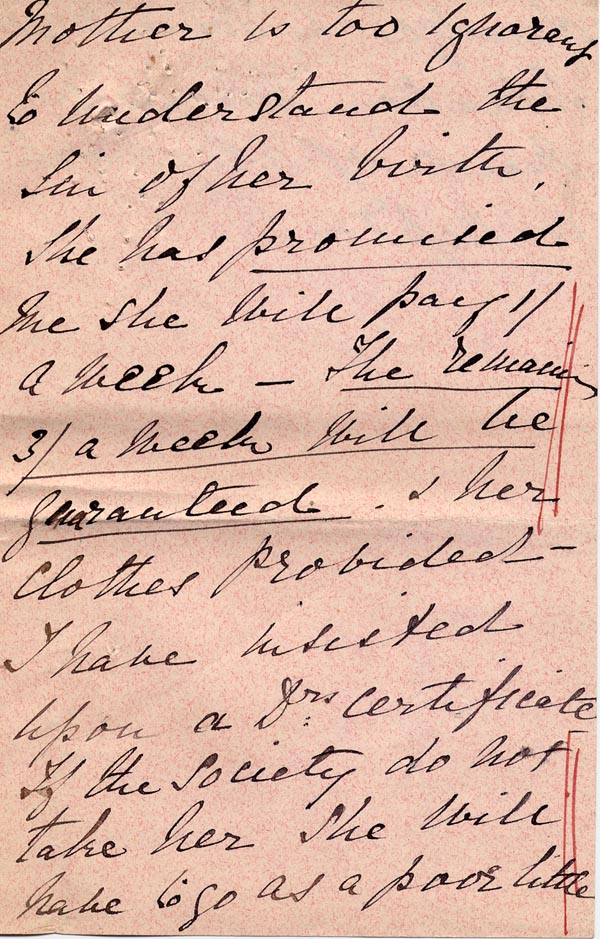 Mother is too ignorant
to understand the
sin of her birth.
She has promised
me she will pay 1/
a week – The remaining
3/ a week will be
guaranteed. & her
clothes provided –
I have insisted
upon a Drs certificate
If the Society do not
take her she will
have to go as a poor little